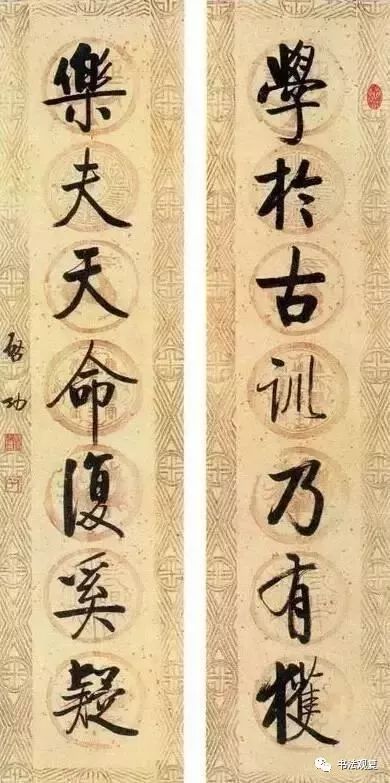 學於古訓乃有獲
樂夫天命復奚疑
啟功
书法观复